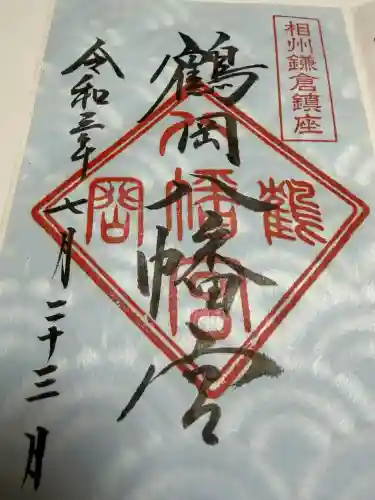 相州鎌倉鎮座
鶴岡八幡宮
鶴岡八幡宮
令和三年七月二十三日